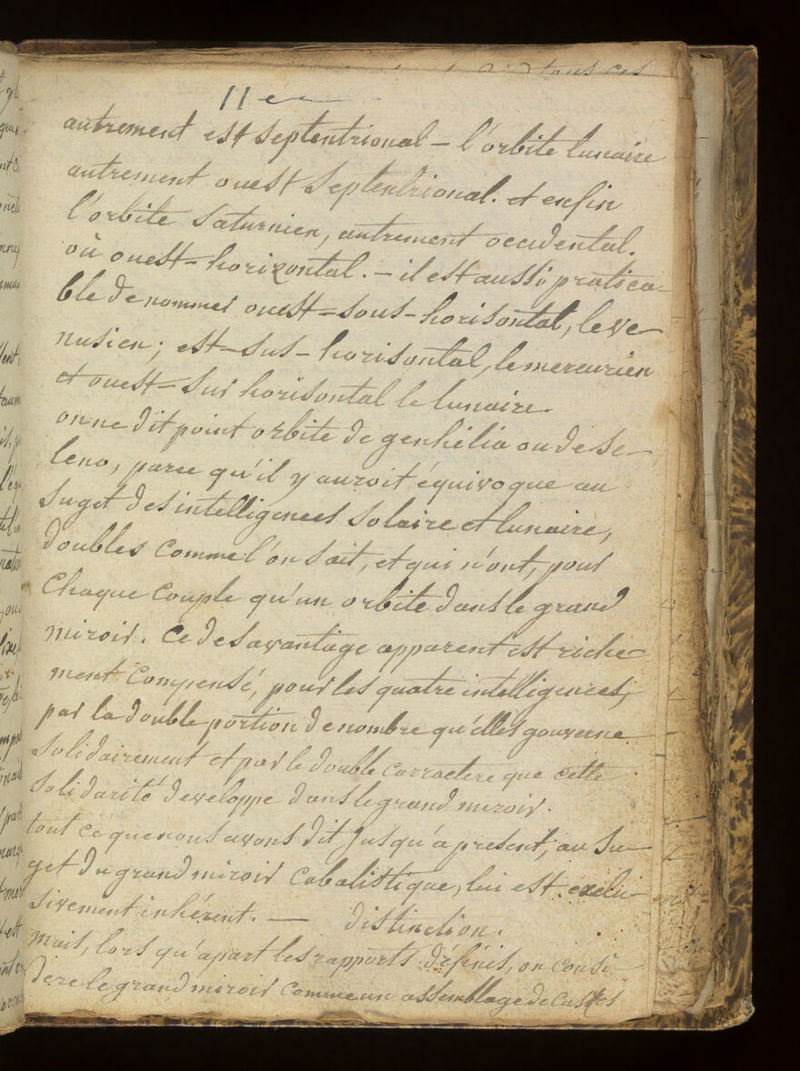 tous ces
11e
autrement est septentrional – l'orbite lunaire
autrement ouest septentrional. et enfin
l'orbite saturnien, autrement occidental.
où ouest=horizontal. – il est aussi pratica-
ble de nommer ouest=sous-horisontal, le ve-
nusien; est-sus-horisontal, le mercurien
et ouest=sur horisontal le lunaire.
on ne dit point orbite de genhélia ou de se-
leno, parce qu'il y auroit équivoque au
suget des intelligences solaire et lunaire,
doubles comme l'on sait, et qui n'ont, pour
chaque couple qu'un orbite dans le grand
miroir. Ce desavantage apparent est riche-
ment compensé, pour les quatre intelligences,
par la double portion de nombre qu'elles gouverne
solidairement et par le double carractere que cette
solidarité developpe dans le grand miroir.
tout ce que nous avons dit jusqu'a present, au su-
get du grand miroir cabalistique, lui est exclu-
sivement inhérent. — distinction.
mais, lors qu'apart les rapports définis, on consi-
dere le grand miroir comme un assemblage de cartes